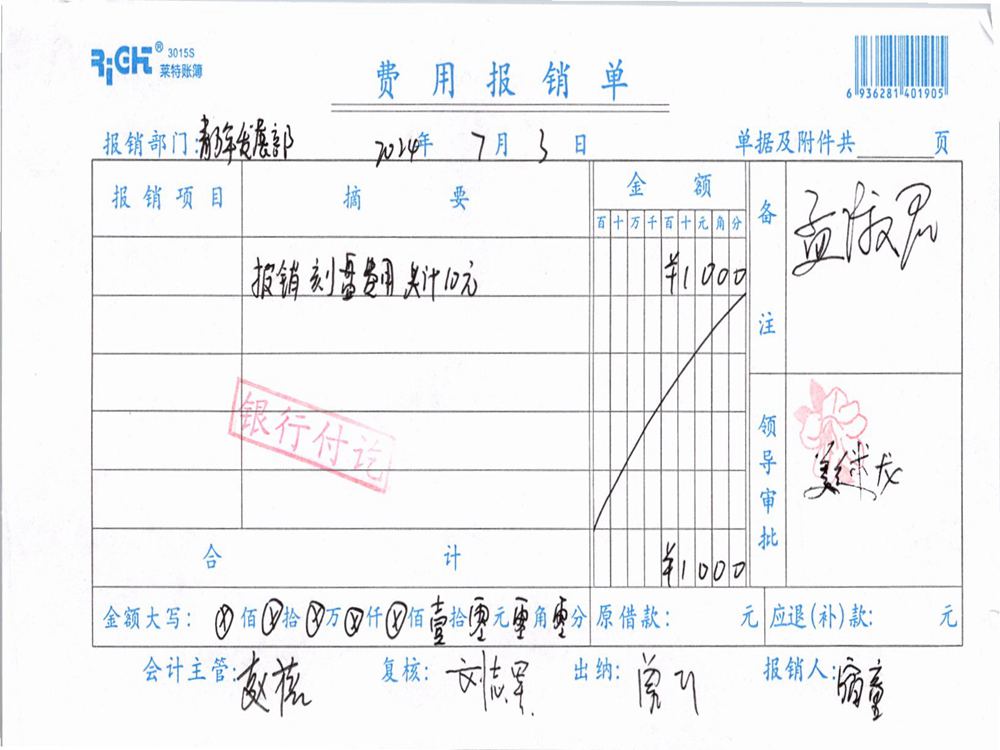 RiGHT® 3015S
莱特账簿
费用报销单
6 936281 401905
报销部门:青年发展部 2024年 7月 3日 单据及附件共 页
报销项目 摘要 金额 备注
百十万千百十元角分
报销刻盘费用共计10元 ¥1000
银行付讫
领导审批
合计 ¥1000
金额大写: ⊗佰⊗拾⊗万⊗仟⊗佰壹拾零元零角零分 原借款: 元 应退(补)款: 元
会计主管: 复核: 刘志军 出纳: 报销人: